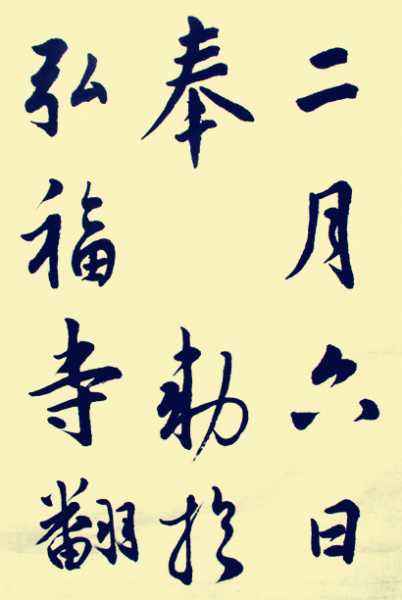 二月六日
奉敕於
弘福寺翻